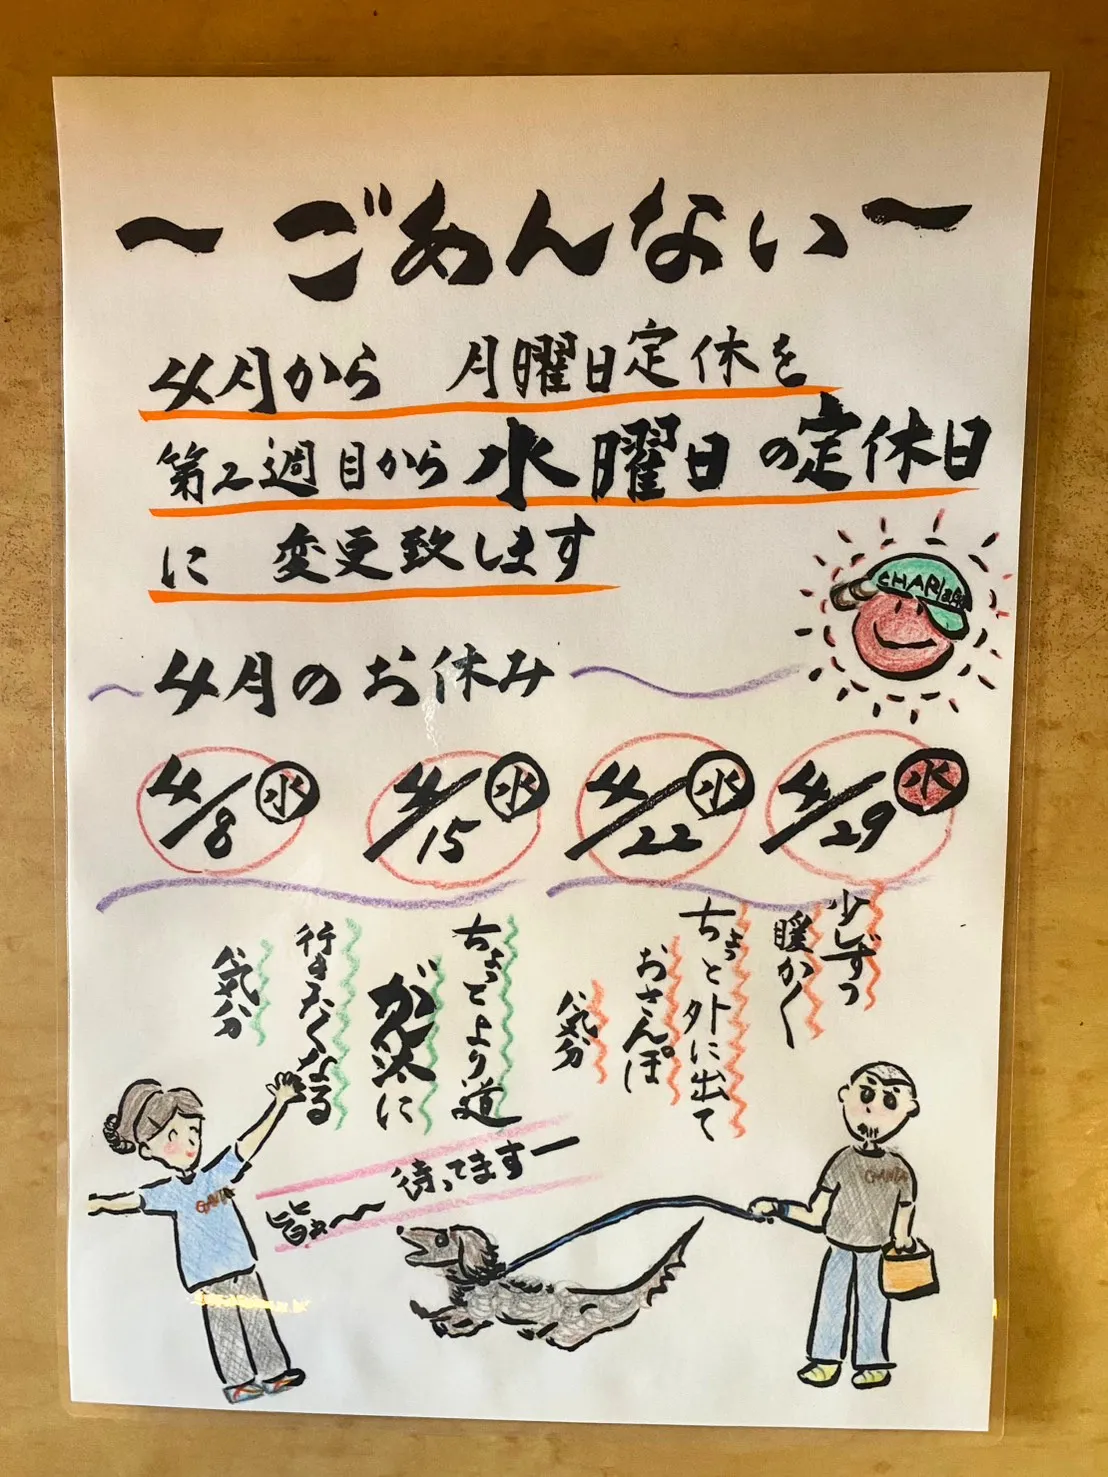 〜ごあんない〜
4月から 月曜日定休を
第2週目から水曜日の定休日
に 変更致します
CHARI
〜4月のお休み〜
4/8㊌
4/15㊌
4/22㊌
4/29㊌
少しずつ
暖かく
ちょっと外に出て
おさんぽ
気分
ちょっとより道
がん汰に
行きたくなる
気分
待ってますー
旨ぁ〜〜
GANTA
GANTA